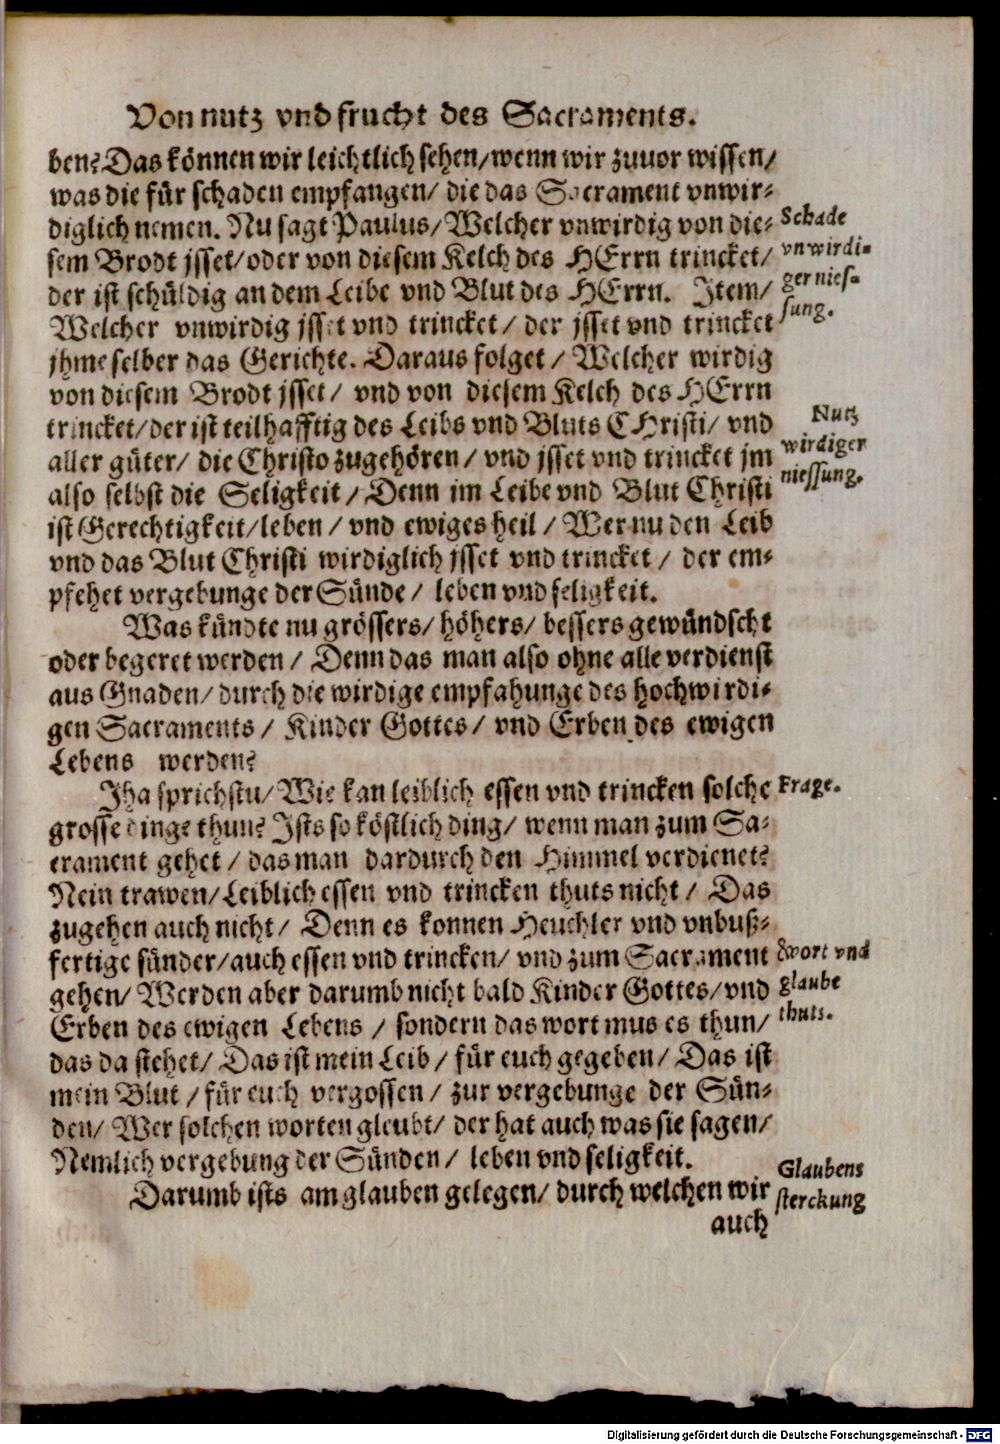 Von nutz vnd frucht des Sacraments.
ben? Das können wir leichtlich sehen/ wenn wir zuuor wissen/
was die für schaden empfangen/ die das Sacrament vnwir-
diglich nemen. Nu sagt Paulus/ Welcher vnwirdig von die-
sem Brodt jsset/ oder von diesem Kelch des HErrn trincket/
der ist schüldig an dem Leibe vnd Blut des HErrn. Item/
Welcher vnwirdig jsset vnd trincket/ der jsset vnd trincket
jhme selber das Gerichte. Daraus folget/ Welcher wirdig
von diesem Brodt jsset/ vnd von diesem Kelch des HErrn
trincket/ der ist teilhafftig des Leibs vnd Bluts CHristi/ vnd
aller güter/ die Christo zugehören/ vnd jsset vnd trincket jm
also selbst die Seligkeit/ Denn im Leibe vnd Blut Christi
ist Gerechtigkeit/ leben/ vnd ewiges heil/ Wer nu den Leib
vnd das Blut Christi wirdiglich jsset vnd trincket/ der em-
pfehet vergebunge der Sünde/ leben vnd seligkeit.
Was kündte nu grössers/ höhers/ bessers gewündscht
oder begeret werden/ Denn das man also ohne alle verdienst
aus Gnaden/ durch die wirdige empfahunge des hochwirdi-
gen Sacraments/ Kinder Gottes/ vnd Erben des ewigen
Lebens werden?
Jha sprichstu/ Wie kan leiblich essen vnd trincken solche
grosse dinge thun? Ists so köstlich ding/ wenn man zum Sa-
crament gehet/ das man dardurch den Himmel verdienet?
Nein trawen/ Leiblich essen vnd trincken thuts nicht/ Das
zugehen auch nicht/ Denn es konnen Heuchler vnd vnbuß-
fertige sünder/ auch essen vnd trincken/ vnd zum Sacrament
gehen/ Werden aber darumb nicht bald Kinder Gottes/ vnd
Erben des ewigen Lebens/ sondern das wort mus es thun/
das da stehet/ Das ist mein Leib/ für euch gegeben/ Das ist
mein Blut/ für euch vergossen/ zur vergebunge der Sün-
den/ Wer solchen worten gleubt/ der hat auch was sie sagen/
Nemlich vergebung der Sünden/ leben vnd seligkeit.
Darumb ists am glauben gelegen/ durch welchen wir
auch
Schade
vnwirdi-
ger nies-
sung.
Nutz
wirdiger
niessung.
Frage.
Wort vnd
glaube
thuts.
Glaubens
sterckung
Digitalisierung gefördert durch die Deutsche Forschungsgemeinschaft - DFG